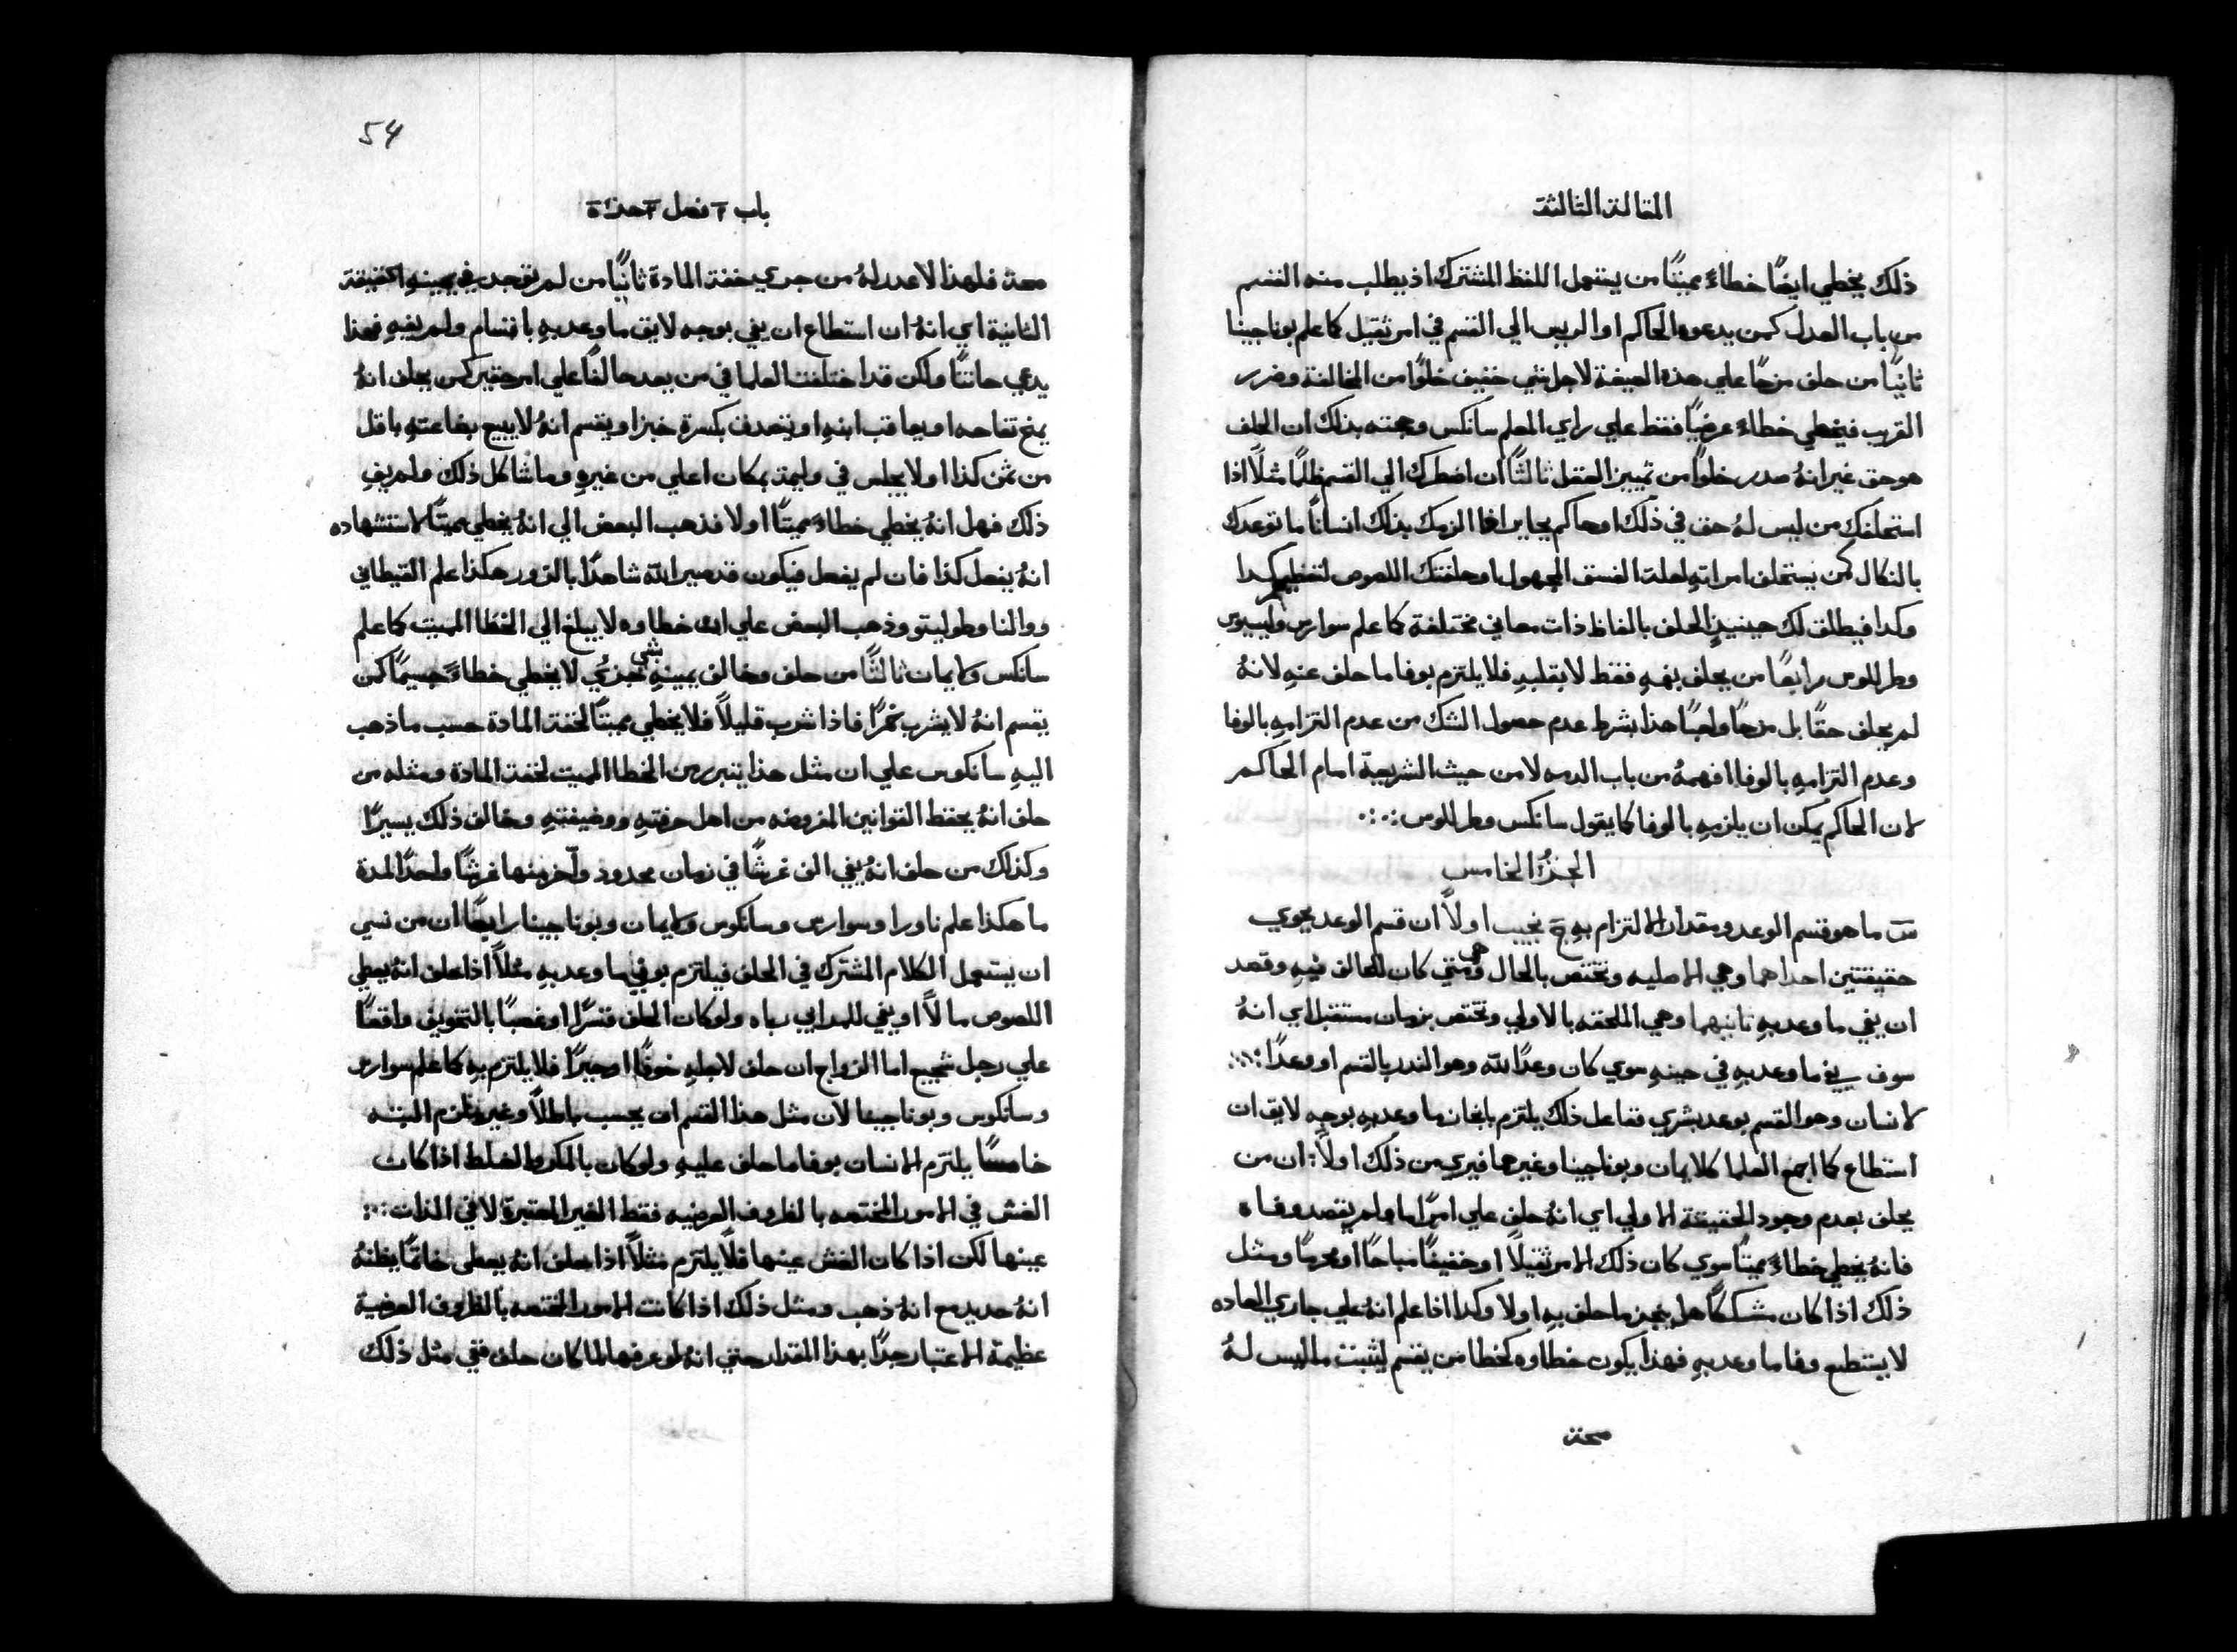 المقالة الثالثة
ذلك يخطي ايضًا خطاءً مميتًا من يستعمل اللفظ المشترك اذ يطلب منه القسم
من باب العدل كمن يدعوه الحاكم او الريس الي القسم في امر ثقيل كما علم بوناجينا
ثانيًا من حلف مزحًا علي هذه الصيغة لاجل شي خفيف خلوًا من المخالفة وضرر
القريب فيخطي خطاءً عرضيًا فقط علي راي المعلم سانكس وحجته بذلك ان الحلف
هو حق غير انهُ صدر خلوًا من تمييز العقل ثالثًا ان اضطرك الي القسم ظلمًا مثلًا اذا
استحلفك من ليس لهُ حق في ذلك او حاكم بجاير اغا الزمك بذلك انسانًا ما توعدك
بالنكال كمن يستحلف امراتهِ لعلة الفسق المجهول او حلفتك اللصوص لتعطيهم كدا
وكدا فيطلق لك حينيذٍ الحلف بالفاظ ذات معاني مختلفة كما علم سوارس وليسيوس
وطرللوس رابعًا من يحلف بفمهِ فقط لا بقلبهِ فلا يلتزم بوفا ما حلف عنهِ لانهُ
لم يحلف حقًا بل مزحًا ولعبًا هذا بشرط عدم حصول الشك من عدم التزامهِ بالوفا
وعدم التزامهِ بالوفا افهمهُ من باب الدمه لا من حيث الشريعة امام الحاكم
لان الحاكم يمكن ان يلزمهِ بالوفا كما يقول سانكس وطرللوس
الجزءُ الخامس
س ما هو قسم الوعد ومقدار الالتزام بهِ ج نجيب اولاً ان قسم الوعد يحوي
حقيقتين احداهما وهي الاصليه وتختص بالحال وهي متي كان للحالف فيهِ وقصد
ان يفي ما وعد بهِ ثانيهما وهي الملحقه بالاولي وتختص بزمان مستقبل اي انهُ
سوف يفي ما وعد بهِ في حينهِ سوي كان وعدًا لله وهو الندر بالقسم او وعدًا
لانسان وهو القسم بوعد بشري ففاعل ذلك يلتزم بانجاز ما وعد بهِ بوجهٍ لايق ان
استطاع كما اجمع العلما كلايمان وبوناجينا وغيرهما فيري من ذلك اولاً ان من
يحلف بعدم وجود الحقيقة الاولي اي انهُ حلف علي امرًا ما ولم يقصد وفاه
فانهُ يخطي خطاءً مميتًا سوي كان ذلك الامر ثقيلاً او خفيفًا مباحًا او محرمًا ومثل
ذلك اذا كان مشككًا هل ينجز ما حلف بهِ اولا وكدا اذا علم انهُ علي جاري العاده
لا يستطيع وفا ما وعد بهِ فهذا يكون خطاوه كخطا من يقسم ليثبت ما ليس لهُ
صحة
54
باب ٢ فصل ٢ جزء ٥
صحة فلهذا لا عدر لهُ من جري خفة المادة ثانيًا من لم توجد في يمينهِ الحقيقة
الثانية اي انهُ ان استطاع ان يفي بوجه لايق ما وعد بهِ باقسام ولم يفهِ فهذا
يدعي حانثًا ولكن قد اختلفت العلما في من يعد حالفًا علي امر حقير كمن يحلف انهُ
يمنح تفاحه او يعاقب ابنهِ او يتصدق بكسرة خبز او يقسم انهُ لا يبيع بضاعتهِ باقل
من ثمن كذا او لا يجلس في وليمة بمكان اعلي من غيرهِ وما شاكل ذلك ولم يفِ
ذلك فهل انهُ يخطي خطاءً مميتًا اولا فذهب البعض الي انهُ يخطي مميتًا لاستشهاده
انهُ يفعل كذا فان لم يفعل فيكون قد صير الله شاهدًا بالزور هكذا علم القيطاني
ووالنا وطوليتو وذهب البعض علي ان خطاوه لا يبلغ الي الخطا المميت كما علم
سانكس وكايمان ثالثًا من حلف وخالف يمينهِ بشي جزءي لا يخطي خطاءً جسيمًا كمن
يقسم انهُ لا يشرب خمرًا فاذا شرب قليلاً فلا يخطي مميتًا لخفة المادة حسب ما ذهب
اليهِ سانكوس علي ان مثل هذا يتبرر من الخطا المميت لخفة المادة ومثله من
حلف انهُ يحفظ القوانين المفروضه من اهل حرفتهِ ووضيفتهِ وخالف ذلك يسيرًا
وكذلك من حلف انهُ يفي الف غرشًا في زمان محدود واخر منها غرشًا واحدًا لمدة
ما هكذا علم ناورا وسوارس وسانكوس وكايمان وبوناجينا رابعًا ان من نسي
ان يستعمل الكلام المشترك في الحلف فيلتزم بوفي ما وعد بهِ مثلاً اذا حلف انهُ يعطي
اللصوص مالاً او يفي للمرابي رباه ولو كان الحلف قسرًا او غصبًا بالتخويف واقعًا
علي رجل شجيع اما الزواج ان حلف لاجلهِ خوفًا او جبرًا فلا يلتزم بهِ كما علم سوارس
وسانكوس وبوناجينا لان مثل هذا القسم ان يحسب باطلاً وغير ملزم البته
خامسًا يلتزم الانسان بوفا ما حلف عليهِ ولو كان بالمكر والغلط اذا كان
الغش في الامور المختصه بالظروف العرضيه فقط الغير المعتبرة لا في الذات
عينها لكن اذا كان الغش عينها فلا يلتزم مثلاً اذا حلف انهُ يعطي خاتمًا يظنهُ
انهُ حديد مع انهُ ذهب ومثل ذلك اذا كانت الامور المختصه بالظروف العرضية
عظيمة الاعتبار جدًا بهذا المقدار حتي انهُ لو عرفها لما كان حلف ففي مثل ذلك